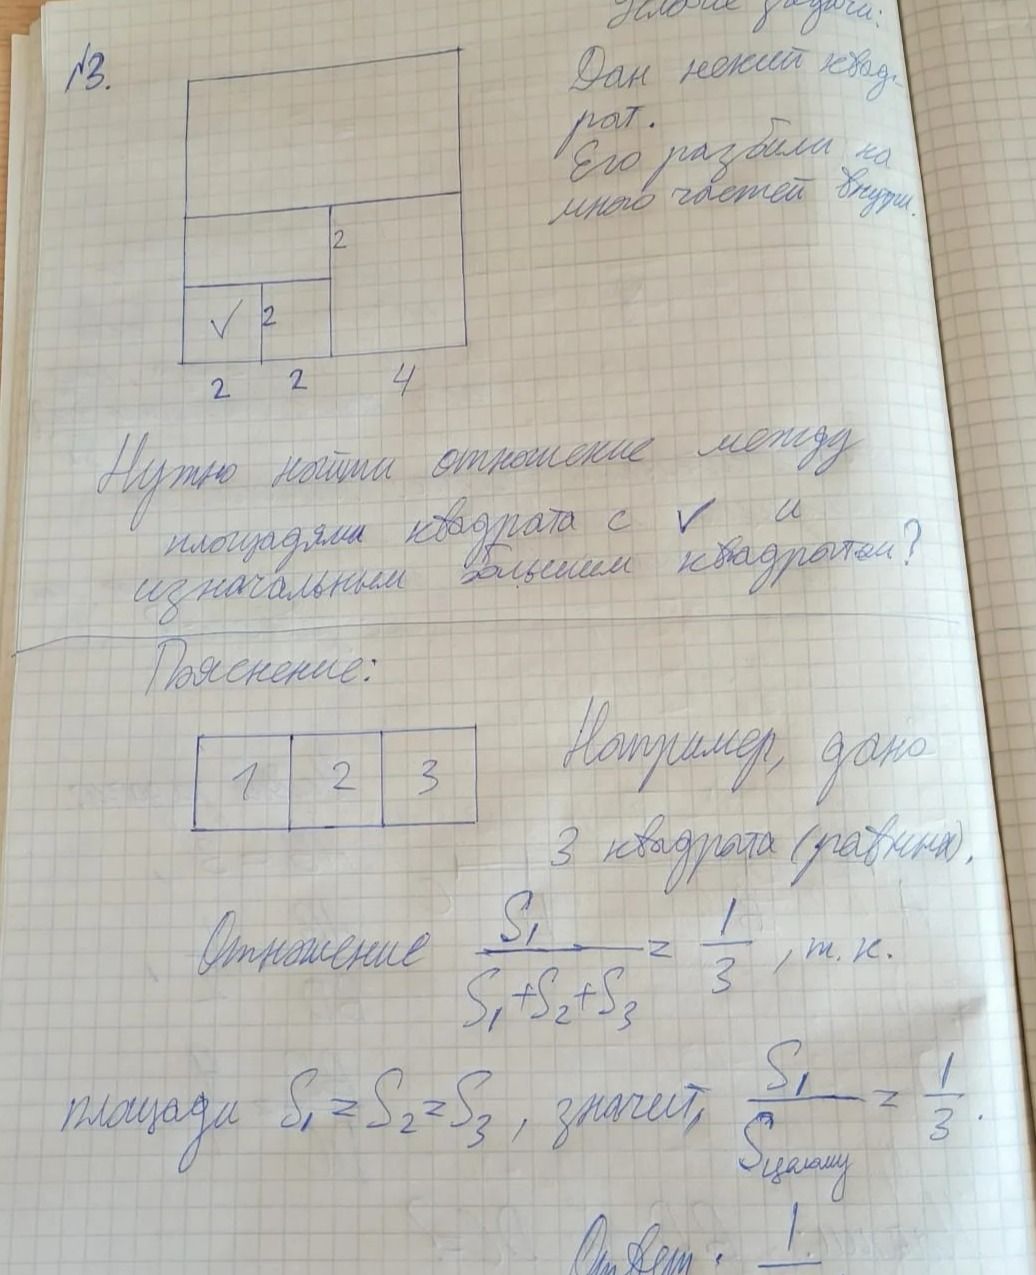 Условие задачи:
№3.
Дан некий квад-
рат.
Его разбили на
много частей внутри.
2
✓ 2
2 2 4
Нужно найти отношение между
площадями квадрата с ✓ и
изначальным большим квадратом?
Пояснение:
1 2 3
Например, дано
3 квадрата (равных).
Отношение S₁/(S₁+S₂+S₃) = 1/3, т.к.
площади S₁=S₂=S₃, значит, S₁/Sцелому = 1/3.
Ответ: 1